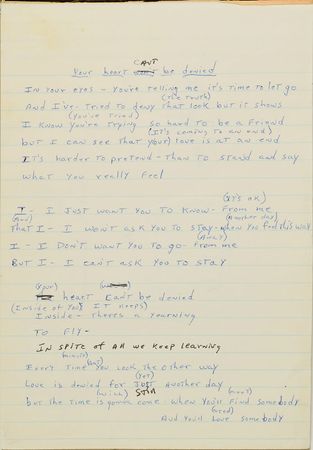 CAN'T
Your heart be denied
IN YOUR EYES - YOU'RE TELLING ME IT'S TIME TO LET GO
(THE TRUTH)
AND I'VE - TRIED TO DENY THAT LOOK BUT IT SHOWS
(YOU'VE TRIED)
I KNOW YOU'RE TRYING SO HARD TO BE A FRIEND
(IT'S COMING TO AN END)
BUT I CAN SEE THAT YOUR LOVE IS AT AN END
IT'S HARDER TO PRETEND - THAN TO STAND AND SAY
WHAT YOU REALLY FEEL
(IT'S OK)
I - I JUST WANT YOU TO KNOW - FROM ME
(AND) (ANOTHER DAY)
THAT I - I WON'T ASK YOU TO STAY - WHEN YOU FEEL THIS WAY
(AWAY)
I - I DON'T WANT YOU TO GO - FROM ME
BUT I - I CAN'T ASK YOU TO STAY
(YOUR)
HEART CAN'T BE DENIED
(INSIDE OF YOU) (IT KEEPS)
INSIDE - THERE'S A YEARNING
TO FLY -
IN SPITE OF All WE KEEP LEARNING
EVERY TIME YOU LOOK THE OTHER WAY
(YET)
LOVE IS DENIED FOR JUST ANOTHER DAY
(WILL) STILL
BUT THE TIME IS GONNA COME - WHEN YOU'LL FIND SOMEBODY
(NEED)
AND YOU'LL LOVE SOMEBODY